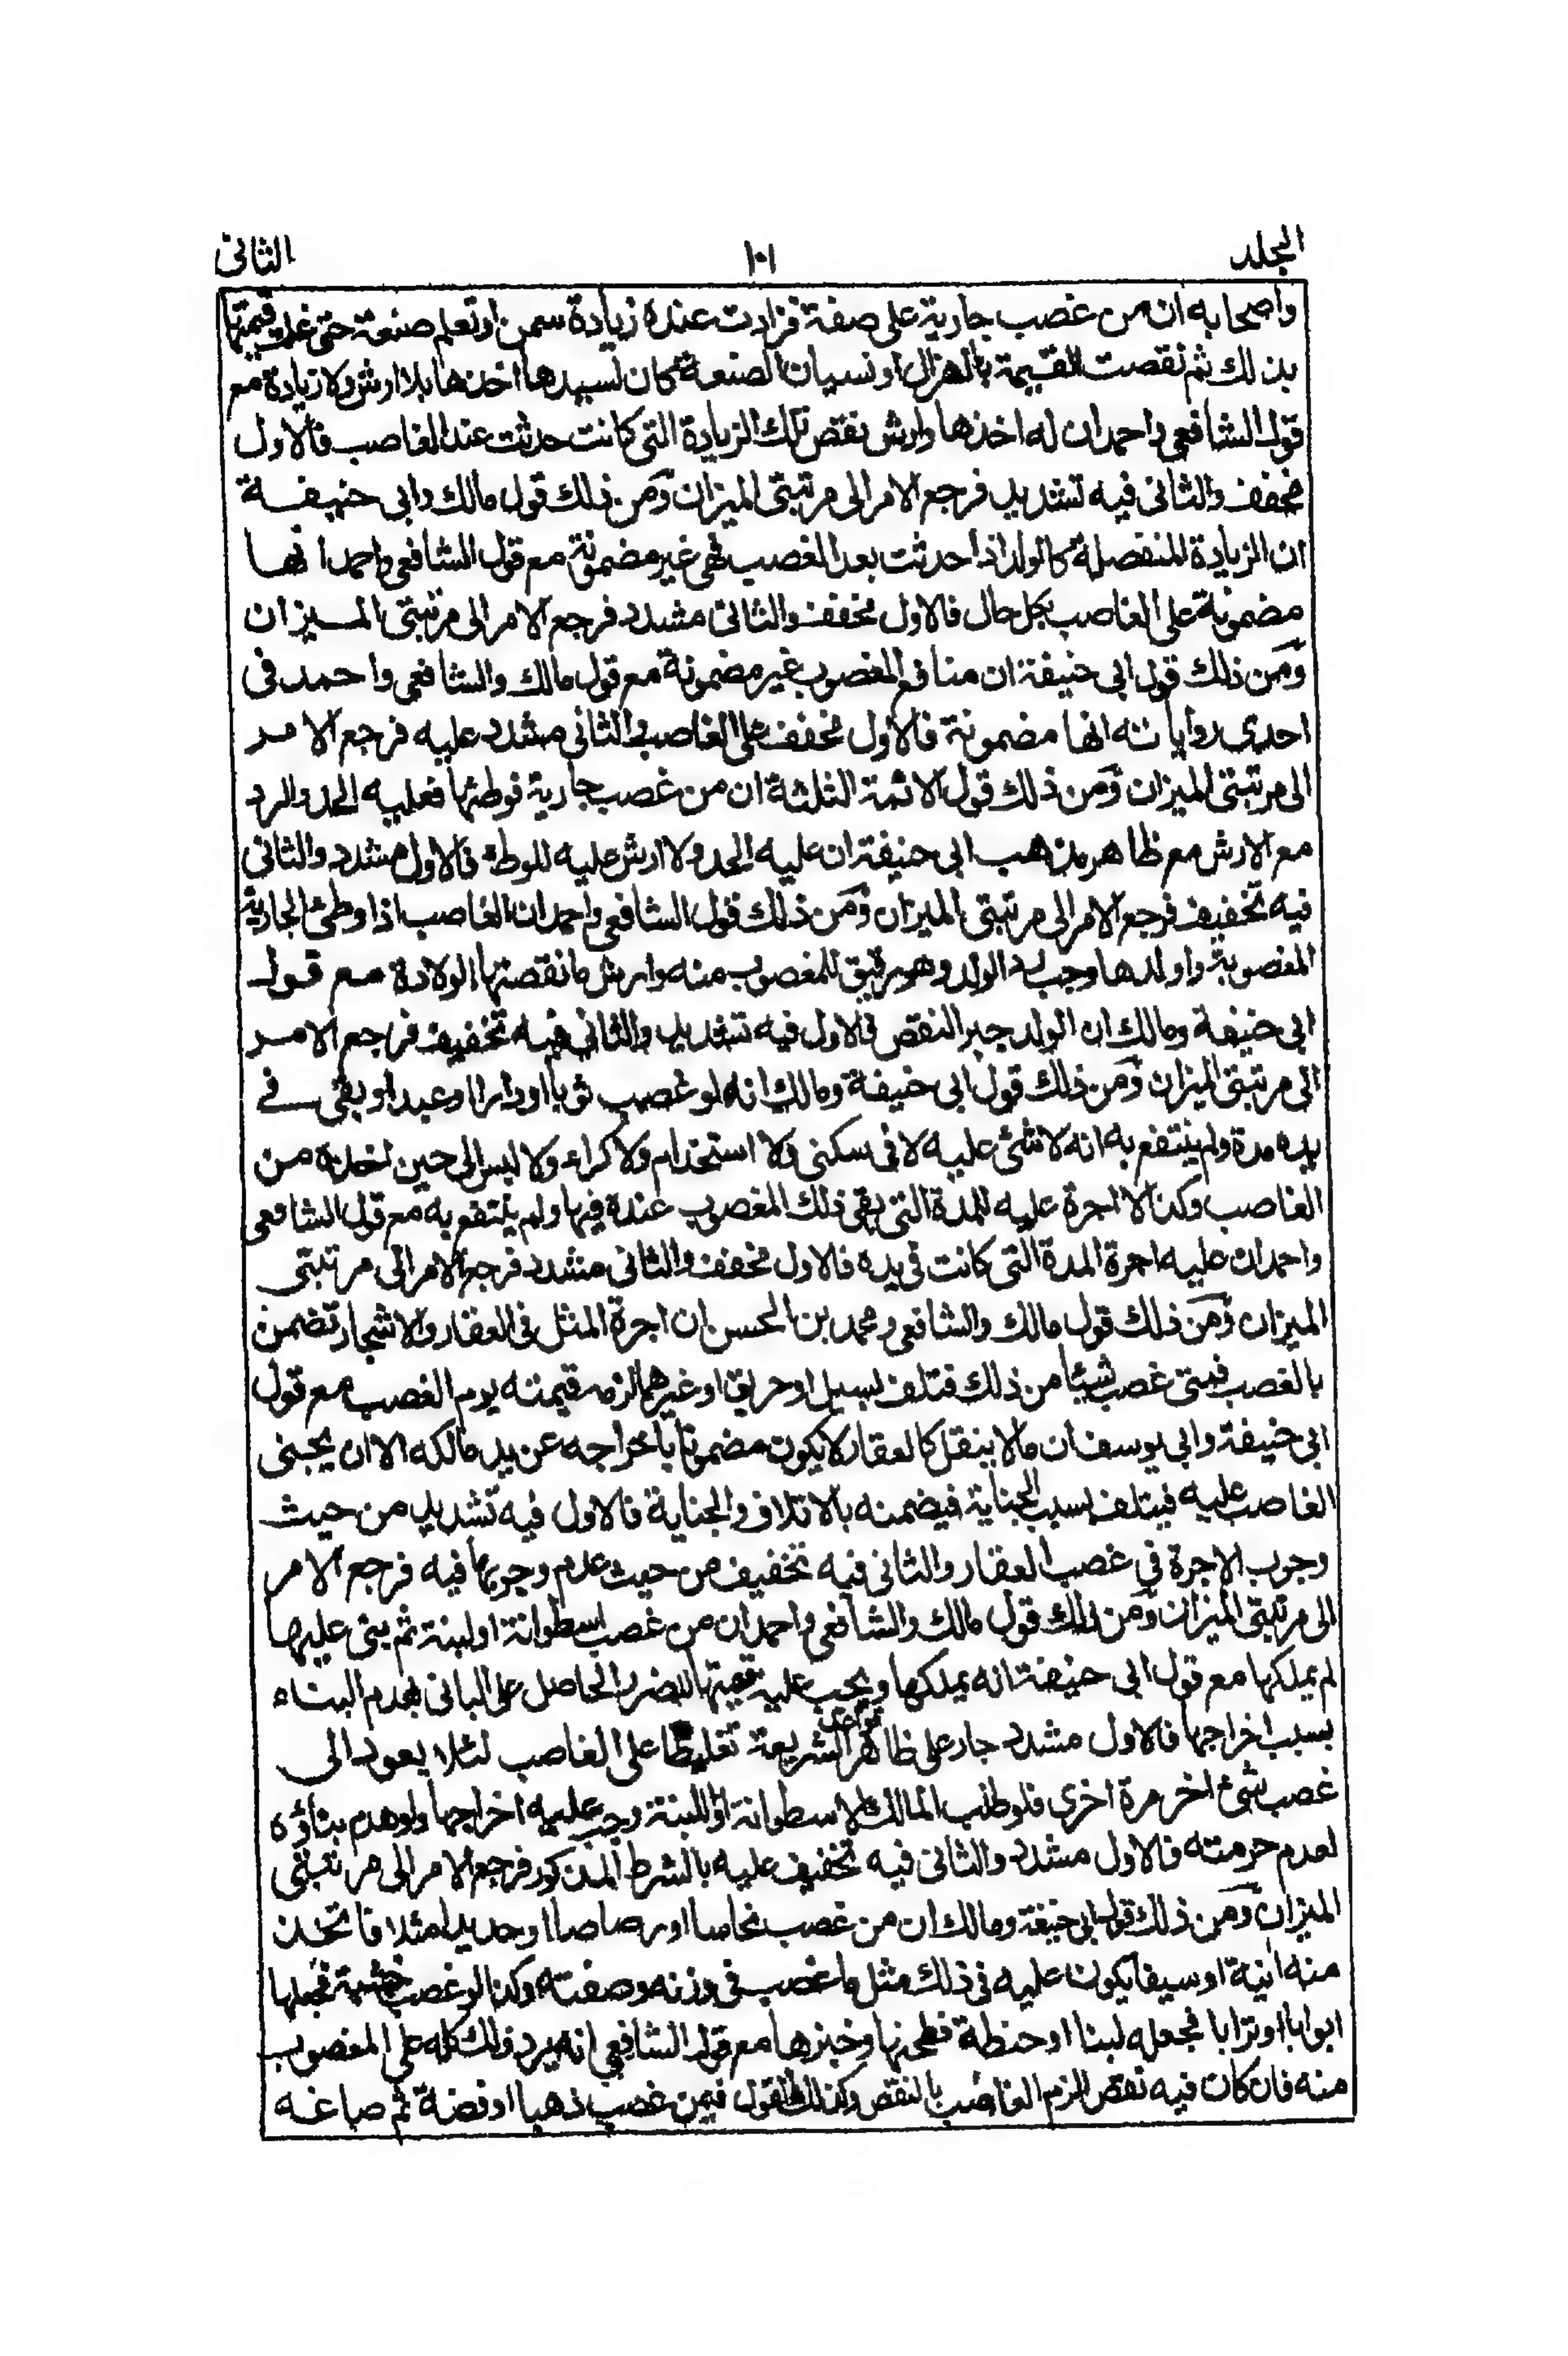 المجلد ١٠١ الثانی
واصحابه ان من غصب جارية على صفة فزادت عنده زيادة سمن او تعلم صنعة حتى غلت قيمتها
بذلك ثم نقصت القيمة بالهزال او نسيان الصنعة كان لسيدها اخذها بلا ارش ولا زيادة مع
قول الشافعى واحمد ان له اخذها وارش نقص تلك الزيادة التى كانت حدثت عند الغاصب فالاول
مخفف والثانى فيه تشديد فرجع الامر الى مرتبتى الميزان ومن ذلك قول مالك وابى حنيفة
ان الزيادة المنفصلة كالولد اذا حدثت بعد الغصب فهى غير مضمونة مع قول الشافعى واحمد انها
مضمونة على الغاصب بكل حال فالاول مخفف والثانى مشدد فرجع الامر الى مرتبتى الميزان
ومن ذلك قول ابى حنيفة ان منافع المغصوب غير مضمونة مع قول مالك والشافعى واحمد فى
احدى رواياته انها مضمونة فالاول مخفف على الغاصب والثانى مشدد عليه فرجع الامر
الى مرتبتى الميزان ومن ذلك قول الائمة الثلثة ان من غصب جارية فوطئها فعليه الحد والرد
مع الارش مع ظاهر مذهب ابى حنيفة ان عليه الحد ولا ارش عليه للوطء فالاول مشدد والثانى
فيه تخفيف فرجع الامر الى مرتبتى الميزان ومن ذلك قول الشافعى واحمد ان الغاصب اذا وطئ الجارية
المغصوبة واولدها وجب رد الولد وهو رقيق للمغصوب منه وارش ما نقصتها الولادة مع قول
ابى حنيفة ومالك ان الولد جبر النقص فالاول فيه تشديد والثانى فيه تخفيف فرجع الامر
الى مرتبتى الميزان ومن ذلك قول ابى حنيفة ومالك انه لو غصب ثوبا او دارا او عبدا وبقى فے
يده مدة ولم ينتفع به انه لا شئ عليه لا فى سكنى ولا استخدام ولا كراء ولا لبس الى حين اخذه من
الغاصب وكذا لا اجرة عليه للمدة التى بقى ذلك المغصوب عنده فيها ولم ينتفع به مع قول الشافعى
واحمد ان عليه اجرة المدة التى كانت فى يده فالاول مخفف والثانى مشدد فرجع الامر الى مرتبتى
الميزان ومن ذلك قول مالك والشافعى ومحمد بن الحسن ان اجرة المثل فى العقار والاشجار تضمن
بالغصب فمتى غصب شيئا من ذلك فتلف بسيل او حريق او غيرهما لزمه قيمته يوم الغصب مع قول
ابى حنيفة وابى يوسف ان ما لا ينقل كالعقار لا يكون مضمونا باخراجه عن يد مالكه الا ان يجنى
الغاصب عليه فيتلف بسبب الجناية فيضمنه بالاتلاف والجناية فالاول فيه تشديد من حيث
وجوب الاجرة فى غصب العقار والثانى فيه تخفيف من حيث عدم وجوبها فيه فرجع الامر
الى مرتبتى الميزان ومن ذلك قول مالك والشافعى واحمد ان من غصب اسطوانة او لبنة ثم بنى عليها
لم يملكها مع قول ابى حنيفة انه يملكها ويجب عليه قيمتها للضرر الحاصل على البانى بهدم البناء
بسبب اخراجها فالاول مشدد جار على ظاهر قواعد الشريعة تغليظا على الغاصب لئلا يعود الى
غصب شئ اخر مرة اخرى فلو طلب المالك الاسطوانة او اللبنة وجب عليه اخراجها ولو هدم بناؤه
لعدم حرمته فالاول مشدد والثانى فيه تخفيف عليه بالشرط المذكور فرجع الامر الى مرتبتى
الميزان ومن ذلك قول ابى حنيفة ومالك ان من غصب نحاسا او رصاصا او حديدا مثلا فاتخذ
منه انية او سيفا يكون عليه فى ذلك مثل ما غصب فى وزنه وصفته وكذا لو غصب خشبة فجعلها
ابوابا او ترابا فجعله لبنا او حنطة فطحنها وخبزها مع قول الشافعى انه يرد ذلك كله على المغصوب
منه فان كان فيه نقص الزم الغاصب بالنقص وكذلك القول فيمن غصب ذهبا او فضة ثم صاغه